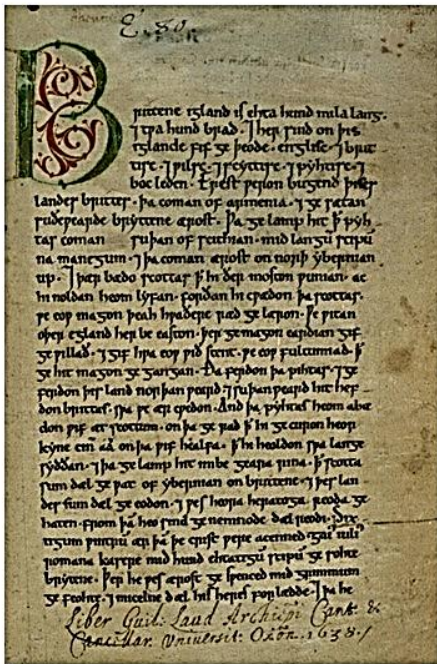 E. 80.
Brittene igland is ehta hund mila lang.
⁊ ƿa hund brad. ⁊ her sind on þis
iglande fif ge þeode. englisc. ⁊ brit
tisc. ⁊ ƿilsc. ⁊ scyttisc. ⁊ pyhtisc. ⁊
boc leden. Erest ƿeron bugend þises
landes brittes. þa coman of armenia. ⁊ ge sætan
suðeƿearde bryttene ærost. Þa ge lamp hit ꝥ pyh
tas coman suþan of scithian. mid langū scipū
na manegum. ⁊ þa coman ærost on norþ ybernian
up. ⁊ þær bædo scottas ꝥ hi ðer moston ƿunian. ac
hi noldan heom lyfan. forðan hi cƿædon þa scottas.
ƿe eoƿ magon þeah hƿaðere ræd ge læron. Ƿe ƿitan
oþer egland her be easton. þer ge magon eardian gif
ge ƿillað. ⁊ gif hƿa eoƿ ƿið stent. ƿe eoƿ fultumiað. ꝥ
ge hit magon ge gangan. Ða ferdon þa pihtas. ⁊ ge
ferdon þis land norþan ƿeard. ⁊ suþan ƿeard hit hef
don brittas. sƿa ƿe ær cƿedon. And þa pyhtas heom abæ
don ƿif æt scottum. on þa ge rad ꝥ hi ge curon heor
kyne cīn aá on þa ƿif healfa. ꝥ hi heoldon sƿa lange
syððan. ⁊ þa ge lamp hit imbe geara rina. ꝥ scotta
sum dæl ge ƿat of ybernian on brittene. ⁊ þes lan
des sum dæl ge eodon. ⁊ ƿes heora heratoga reoda ge
haten. from þā heo sind ge nemnode dæl reodi. Six
tigum ƿintrū ær þā þe crist ƿere acenned. gaī iuliꝰ
romana kasere mid hund ehtatigū scipū ge sohte
brytene. Þer he ƿes ærost ge sƿenced mid grimmum
ge feohte. ⁊ micelne dæl his heres for lædde. ⁊ þa he
Liber Guil: Laud Archiep̄i Cant: &
Cancellar. Universit: Oxōn. 1638./